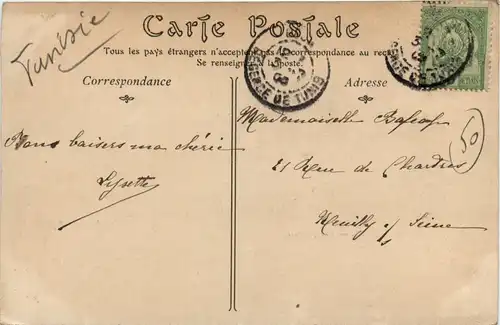 Tunisie
Carte Postale
Tous les pays étrangers n'acceptent pas la correspondance au recto
Se renseigner à la poste.
Correspondance
Adresse
Bons baisers ma chérie
Lysette
Mademoiselle
21 Rue de Chartres
Neuilly s/ Seine
50
REGENCE DE TUNIS
REGENCE DE TUNIS